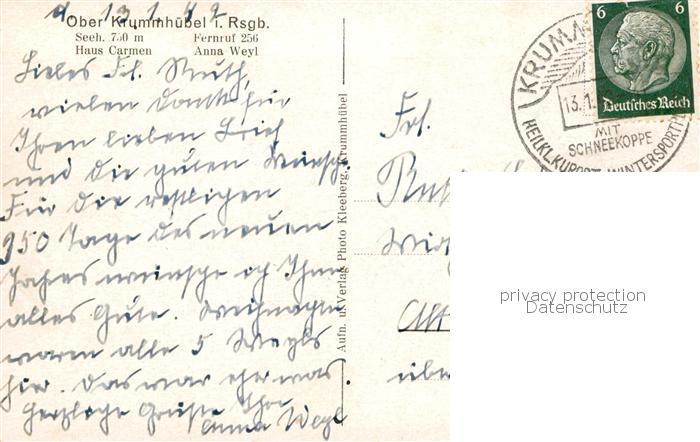 Ober Krummhübel i. Rsgb.
Seeh. 750 m Fernruf 256
Haus Carmen Anna Weyl
13.1.42
Liebes Frl. Ruth,
vielen Dank für
Ihren lieben Brief
und die guten Wünsche.
Für die restlichen
350 Tage des neuen
Jahres wünsche ich Ihnen
alles Gute. Weihnachten
waren alle 5 Weyls
hier. Das war eher was.
Herzliche Grüße Ihre
Anna Weyl
Aufn. u. Verlag Photo Kleeberg, Krummhübel
Frl.
Alt
über
6 6
Deutsches Reich
KRUMM
13.1.
MIT
SCHNEEKOPPE
HEILKL. KURORT WINTERSPORTPL
privacy protection
Datenschutz